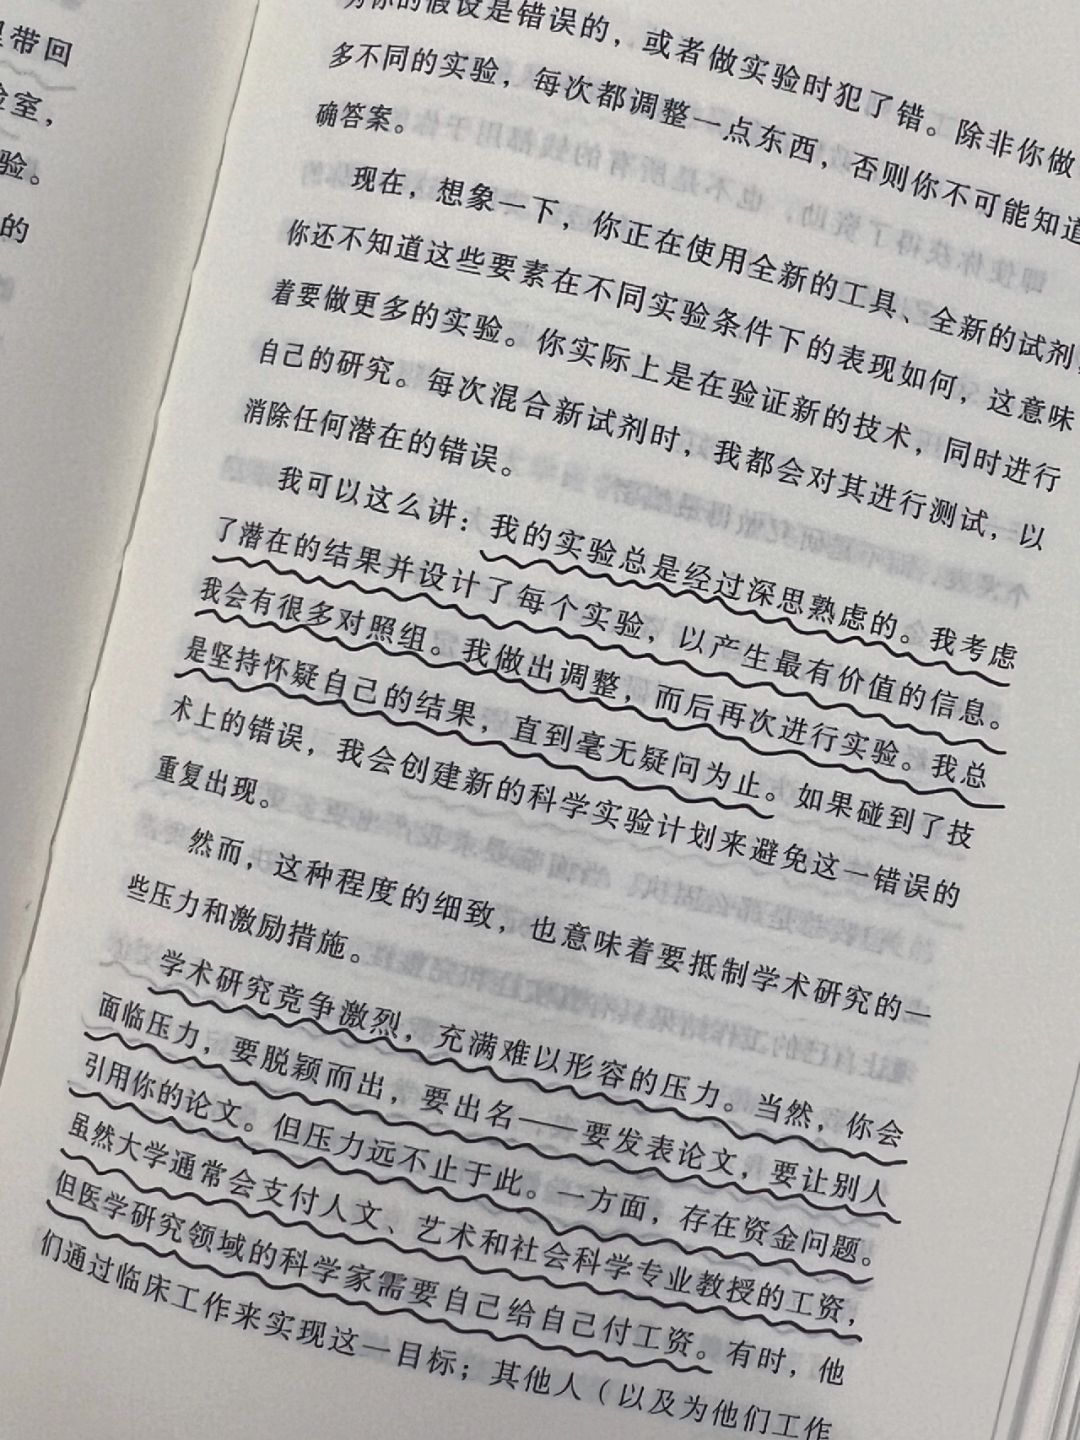 带回
验室，
验。
的
你的假设是错误的，或者做实验时犯了错。除非你做
多不同的实验，每次都调整一点东西，否则你不可能知道
确答案。
现在，想象一下，你正在使用全新的工具、全新的试剂，
你还不知道这些要素在不同实验条件下的表现如何，这意味
着要做更多的实验。你实际上是在验证新的技术，同时进行
自己的研究。每次混合新试剂时，我都会对其进行测试，以
消除任何潜在的错误。
我可以这么讲：我的实验总是经过深思熟虑的。我考虑
了潜在的结果并设计了每个实验，以产生最有价值的信息。
我会有很多对照组。我做出调整，而后再次进行实验。我总
是坚持怀疑自己的结果，直到毫无疑问为止。如果碰到了技
术上的错误，我会创建新的科学实验计划来避免这一错误的
重复出现。
然而，这种程度的细致，也意味着要抵制学术研究的一
些压力和激励措施。
学术研究竞争激烈，充满难以形容的压力。当然，你会
面临压力，要脱颖而出，要出名——要发表论文，要让别人
引用你的论文。但压力远不止于此。一方面，存在资金问题。
虽然大学通常会支付人文、艺术和社会科学专业教授的工资，
但医学研究领域的科学家需要自己给自己付工资。有时，他
们通过临床工作来实现这一目标；其他人（以及为他们工作